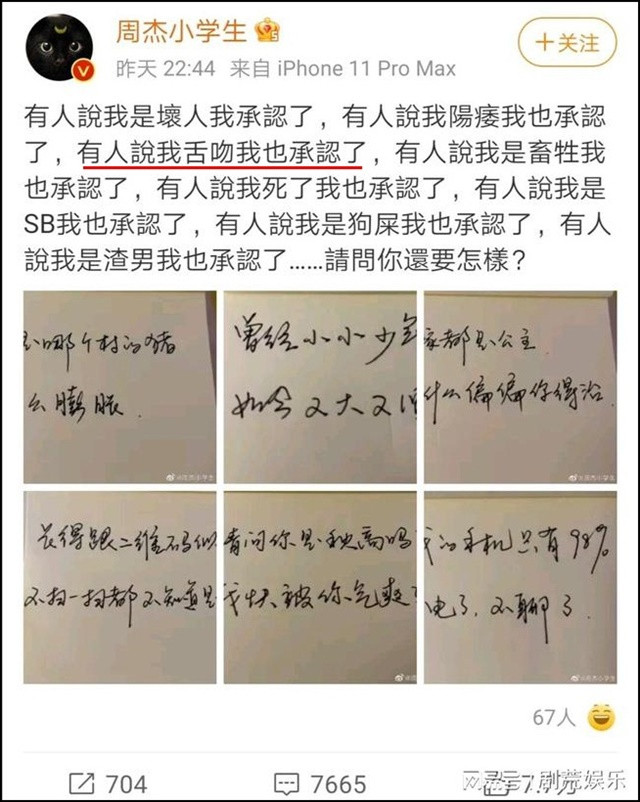 周杰小学生
昨天 22:44 来自 iPhone 11 Pro Max
+关注
有人說我是壞人我承認了，有人說我陽痿我也承認
了，有人說我舌吻我也承認了，有人說我是畜牲我
也承認了，有人說我死了我也承認了，有人說我是
SB我也承認了，有人說我是狗屎我也承認了，有人
說我是渣男我也承認了……請問你還要怎樣？
是哪个村的猪
么膨胀.
曾经小小少年
如今又大又
家都是公主
什么偏偏你得治.
@周杰小学生
@周杰小学生
长得跟二维码似
不扫一扫都不知道是
请问你是秋高吗
我快被你气爽了
我的手机只有98%
电了.不聊了.
@周杰小学生
@周杰小学生
67人
704
7665
7.1万
剧荒娱乐